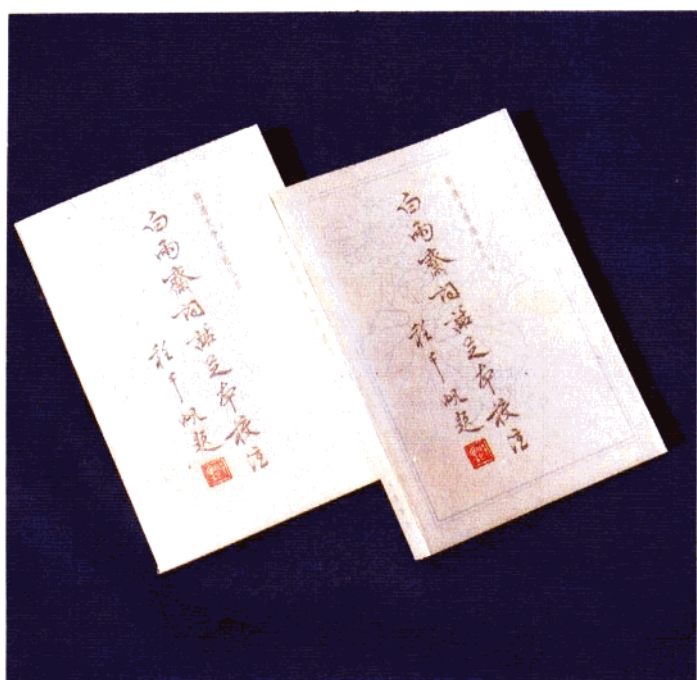 白雨齋词話足本校注
程千帆题
白雨齋词話足本校注
程千帆题